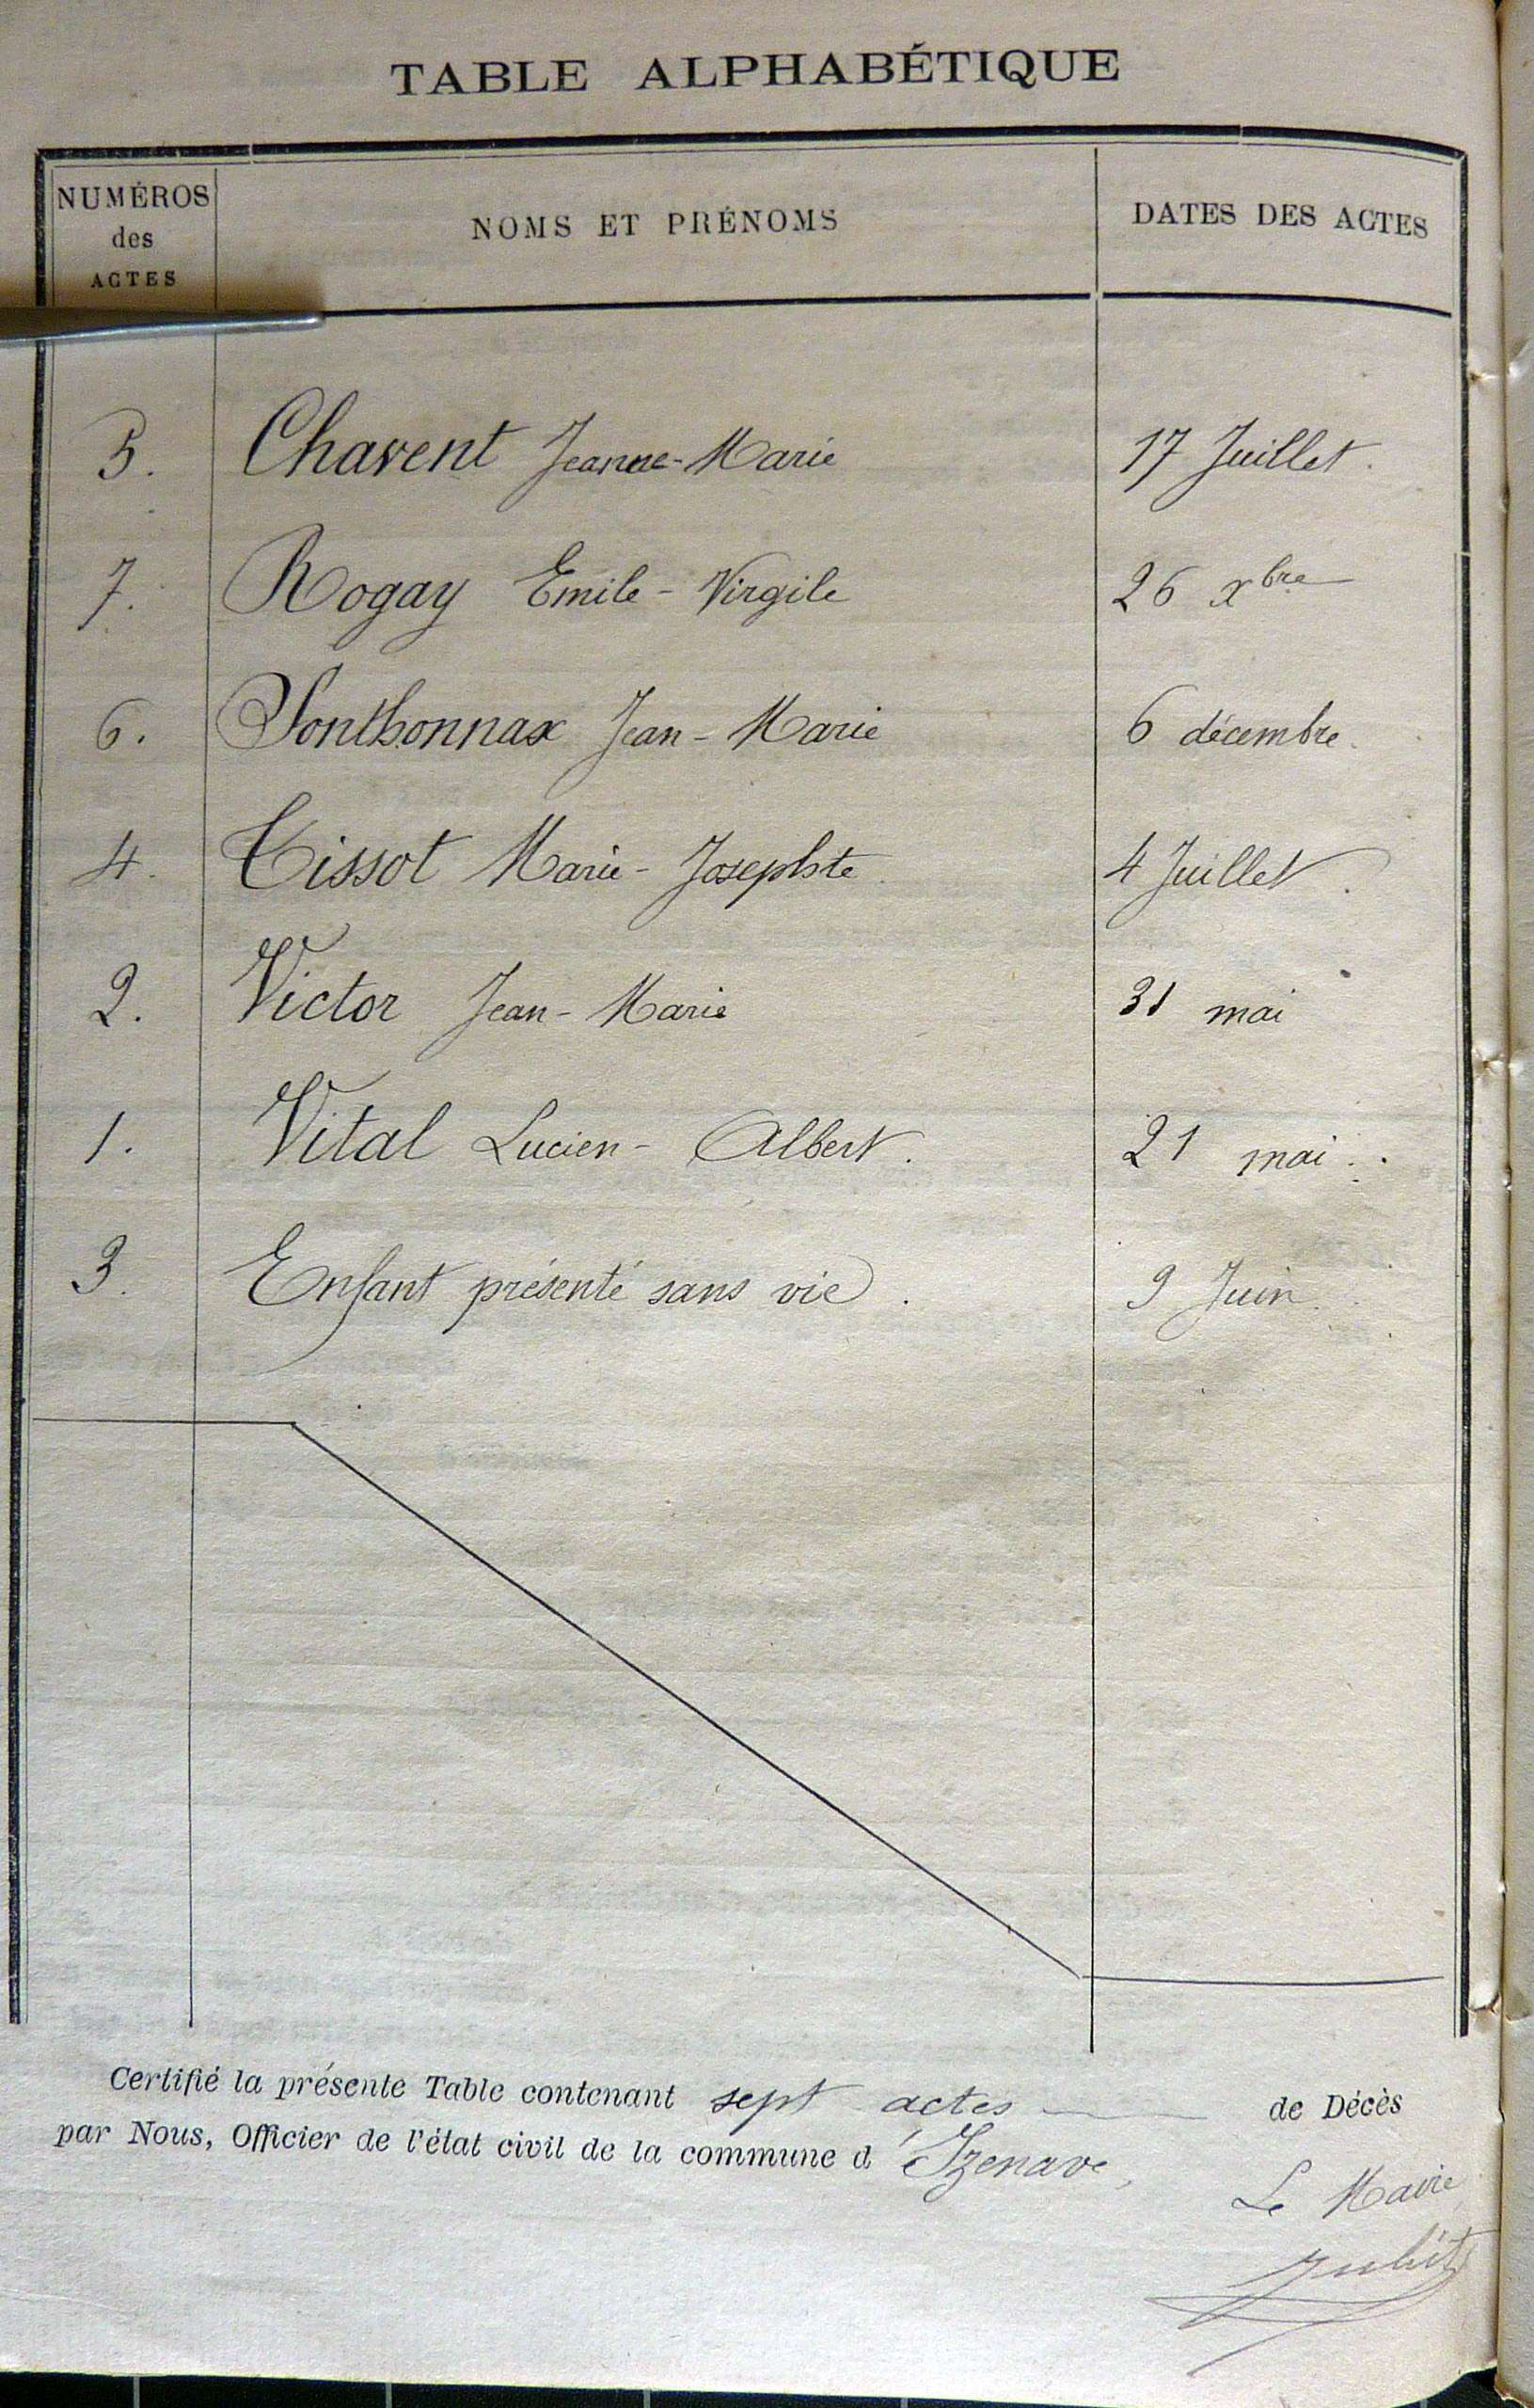 TABLE ALPHABÉTIQUE
NUMÉROS des ACTES NOMS ET PRÉNOMS DATES DES ACTES
5. Chavent Jeanne-Marie 17 Juillet.
7. Rogay Emile-Virgile 26 xbre
6. Sonthonnax Jean-Marie 6 décembre.
4. Tissot Marie-Josephte. 4 Juillet.
2. Victor Jean-Marie 31 mai
1. Vital Lucien-Albert. 21 mai.
3. Enfant présenté sans vie. 9 Juin.
Certifié la présente Table contenant sept actes de Décès
par Nous, Officier de l'état civil de la commune d'Izenave,
Le Maire